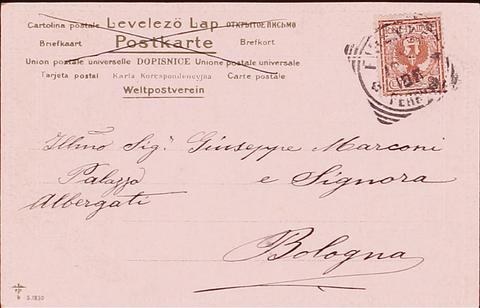 Cartolina postale Levelező Lap ОТКРЫТОЕ ПИСЬМО
Briefkaart Postkarte Brefkort
Union postale universelle DOPISNICE Unione postale universale
Tarjeta postal Karta Korespondencyjna Carte postale
Weltpostverein
Illmo Sigr Giuseppe Marconi
Palazzo e Signora
Albergati
Bologna